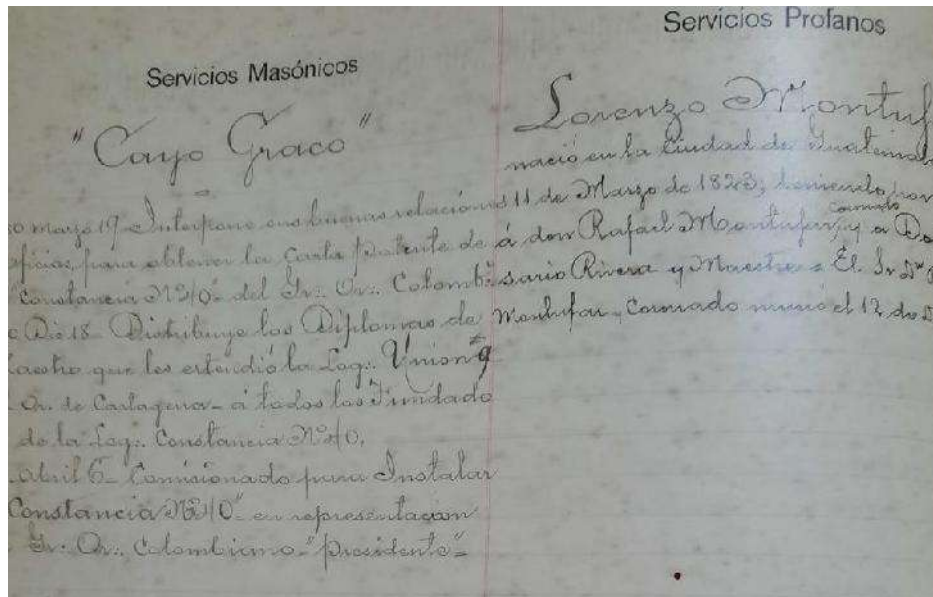 Servicios Masónicos
"Cayo Graco"
o marzo 19_ Interpone sus buenas relacion
oficios, para obtener la Carta patente de
"Constancia Nº 10" del Gr∴ Or∴ Colomb
Dic 18_ Distribuye los Diplomas de
aestro que les estendió la Log∴ Union 9
Or. de Cartagena_ a todos los Fundado
de la Log∴ Constancia Nº 10.
abril 6_ Comisionado para Instalar
Constancia Nº 10" en representacion
Gr∴ Or∴ Colombiano_ "Presidente"_
Servicios Profanos
Lorenzo Montuf
nació en la Ciudad de Guatemal
11 de Marzo de 1823, teniendo por
á don Rafael Montufar, y a Do
Coronado
sario Rivera y Maestre_ El Sr Dn
Montufar_ Coronado murió el 12 de